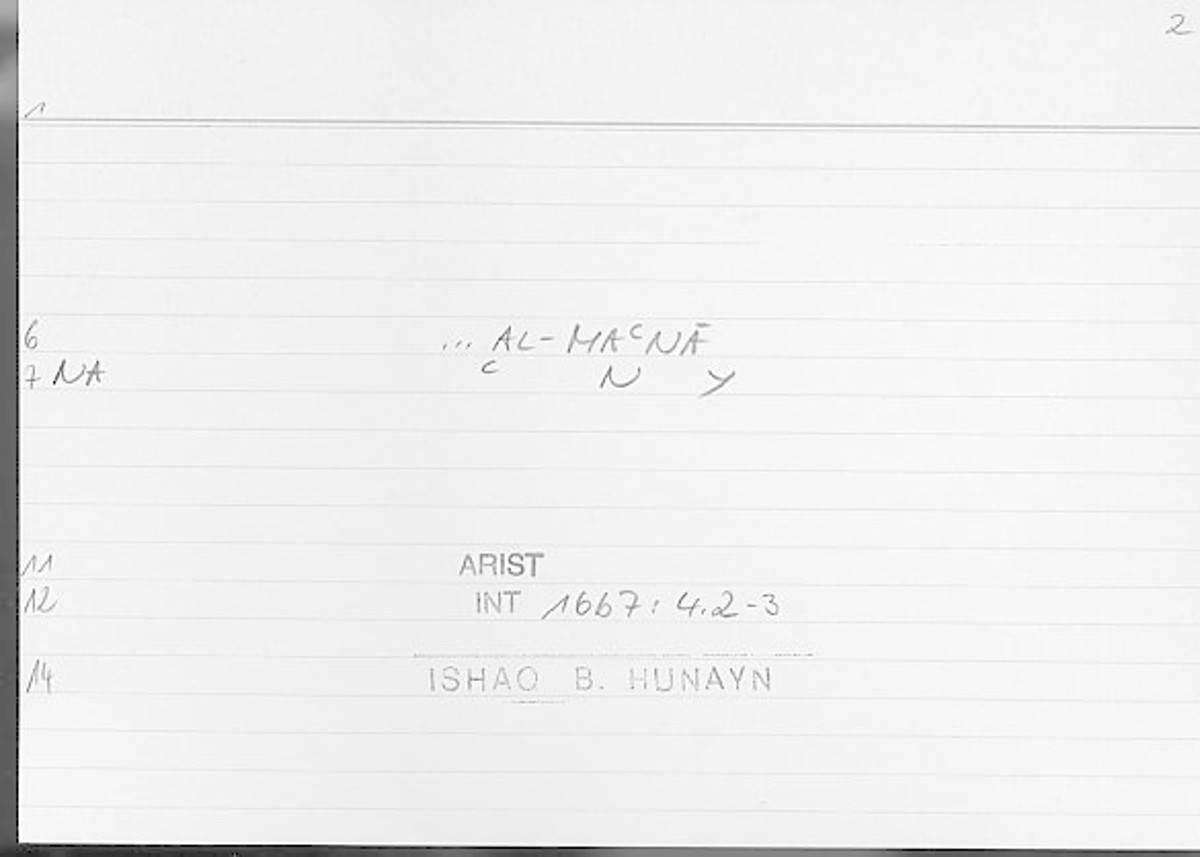 2
1
6 ... AL-MAᶜNĀ
7 NA ᶜ N Y
11 ARIST
12 INT 1667: 4.2-3
14 ISHAQ B. HUNAYN